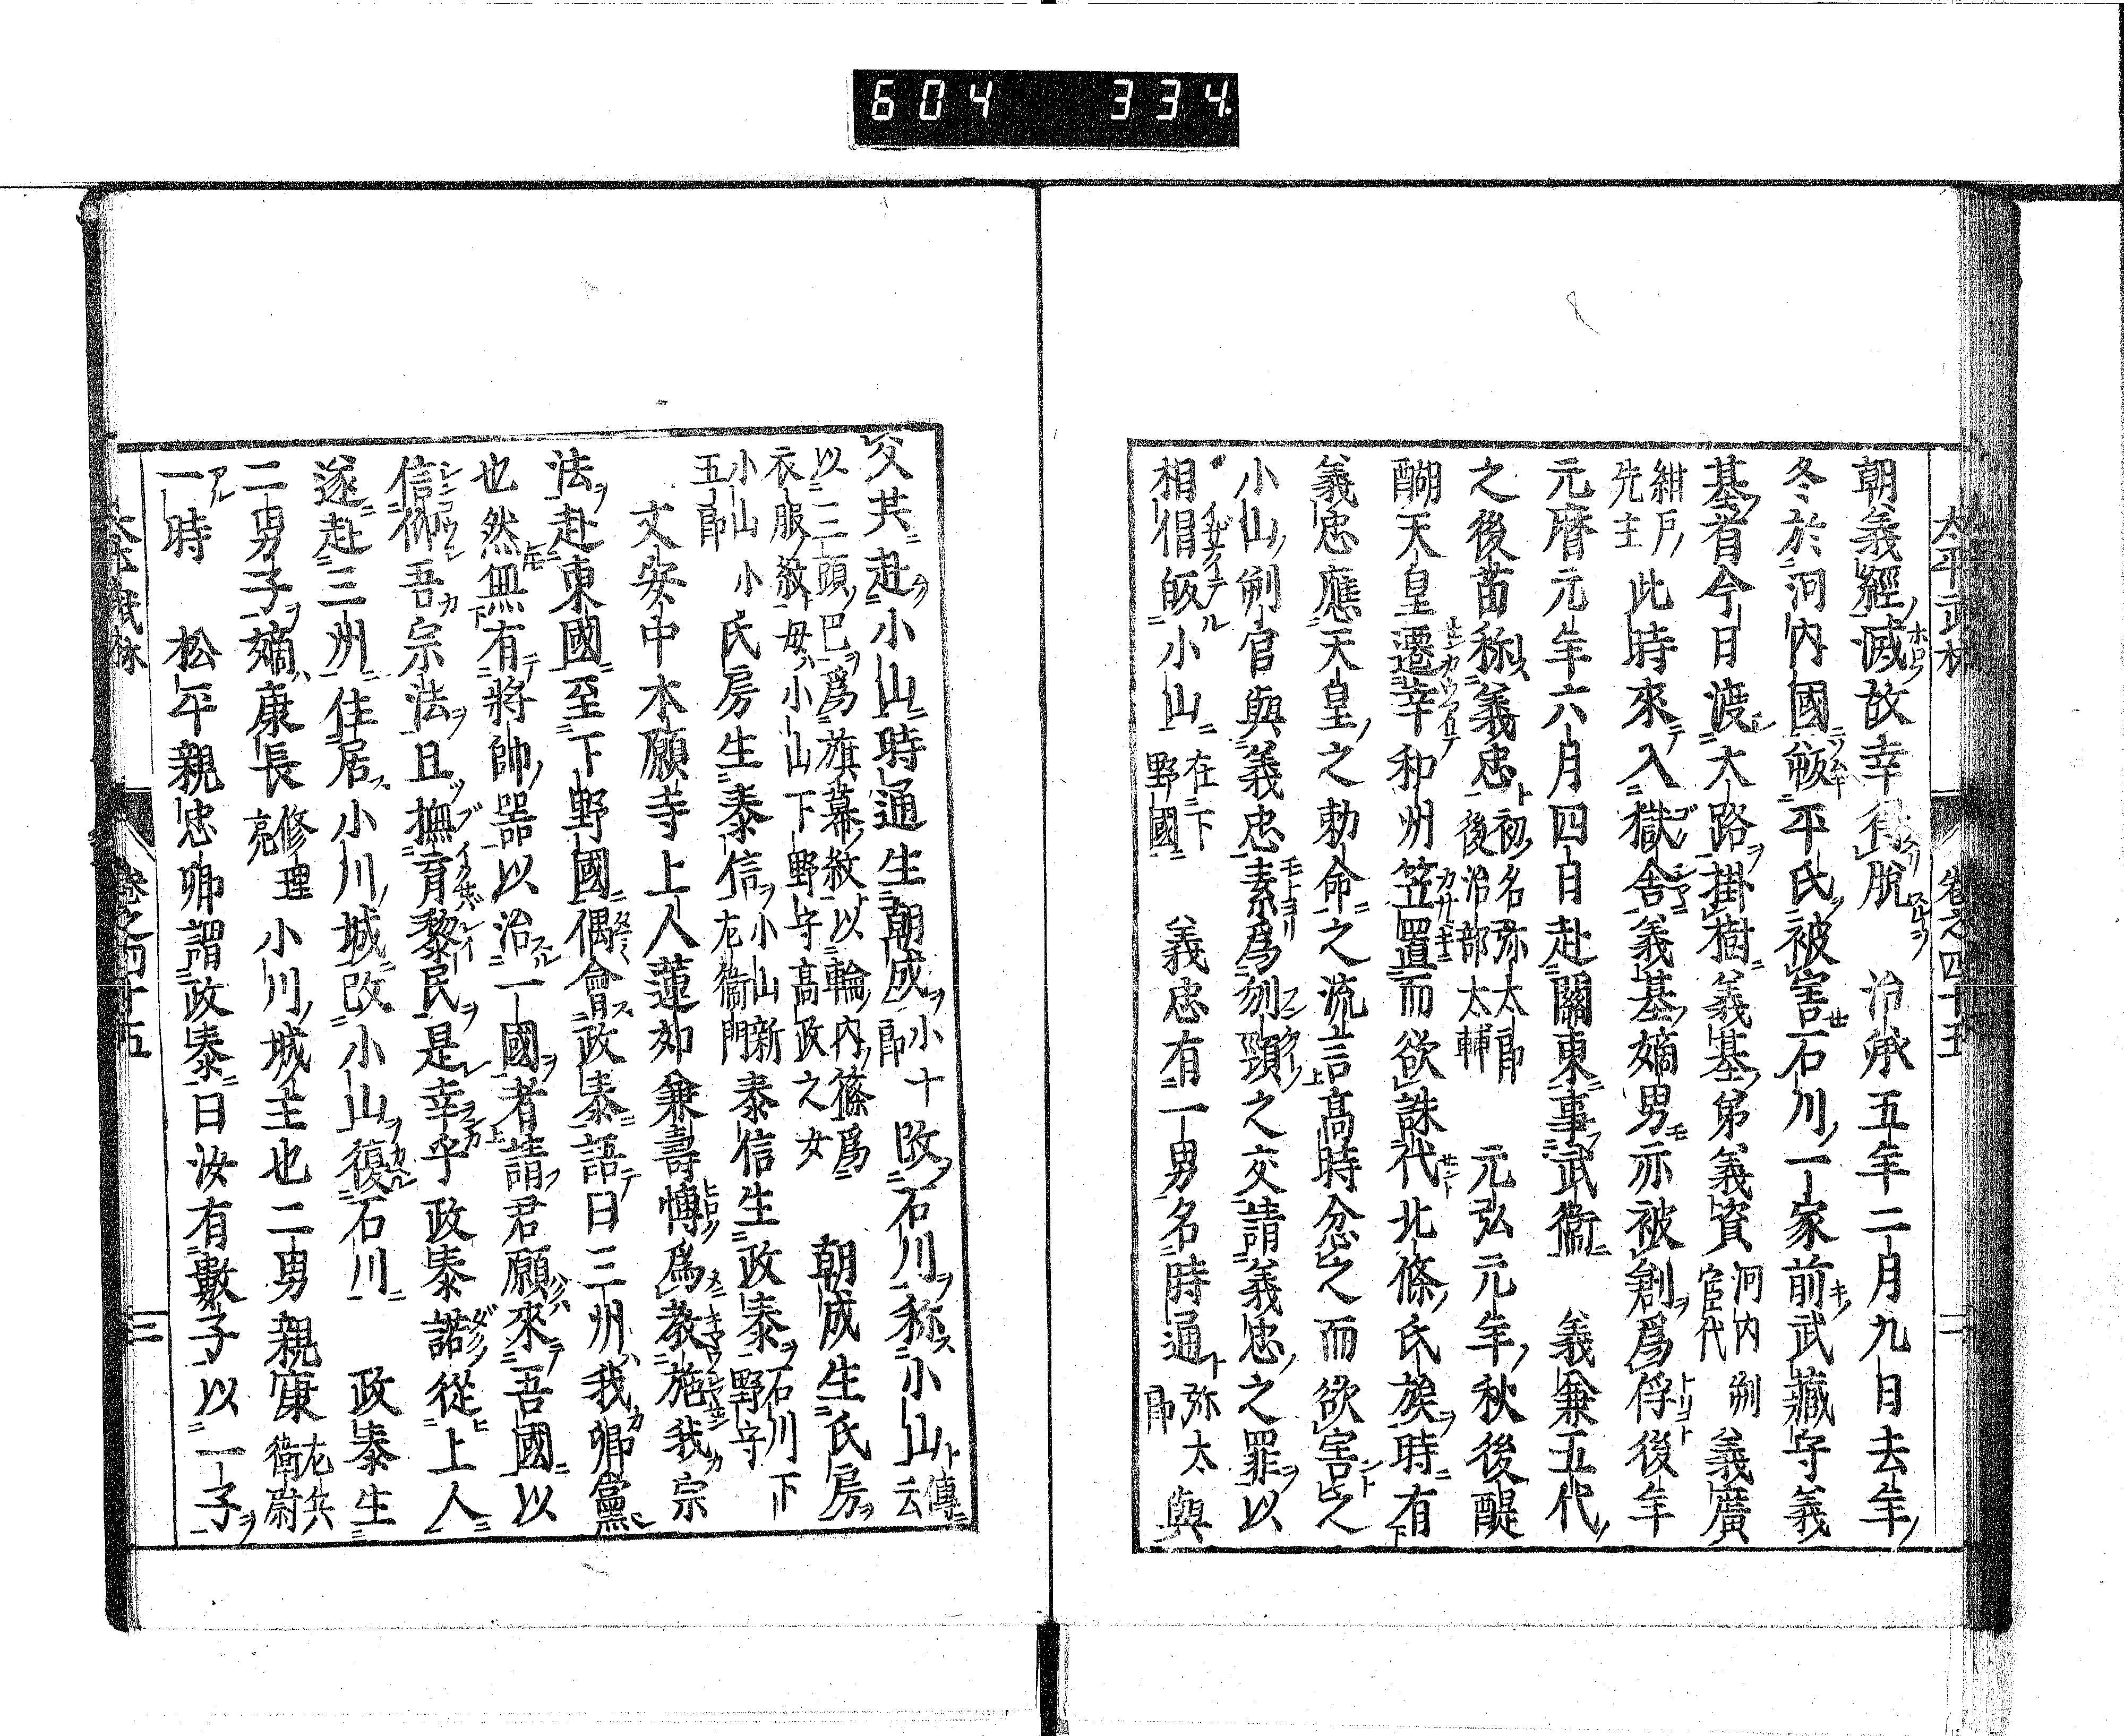 604 334
太平武林 卷之四十五 二
朝義經滅故幸得脫 治承五年二月九日去年
冬於河内國叛平氏被害石川一家前武藏守義
基首今日渡大路掛樹義基弟義資河内判官代義廣
紺戸先生此時來入獄舍義基嫡男亦被創爲俘後年
元曆元年六月四日赴關東事武衞 義兼五代
之後苗称義忠初名弥太郎後治部太輔 元弘元年秋後醍
醐天皇遷幸和州笠置而欲誅代北條氏族時有
義忠應天皇之勅命之流言高時忿之而欲害之
小山判官與義忠素爲刎頸之交請義忠之罪以
相倡皈小山在下野國 義忠有一男名時通弥太郎與
父共赴小山時通生朝成小十郎改石川称小山傳云
以三頭巴爲旗幕敎以輪内篠爲
衣服敎母小山下野守高政之女 朝成生氏房
小山小五郎 氏房生泰信小山新左衞門 泰信生政泰石川下野守
文安中本願寺上人蓮如兼壽愽爲敎施我宗
法赴東國至下野國偶會政泰語曰三州我卿黨
也然無有將帥器以治一國者請君願來吾國以
信仰吾宗法且撫育黎民是幸乎政泰諾從上人
遂赴三州住居小川城改小山復石川 政泰生
二男子嫡康長修理亮小川城主也二男親康左兵衞尉
一時 松平親忠卿謂政泰曰汝有數子以一子
太平武林 卷之四十五 三